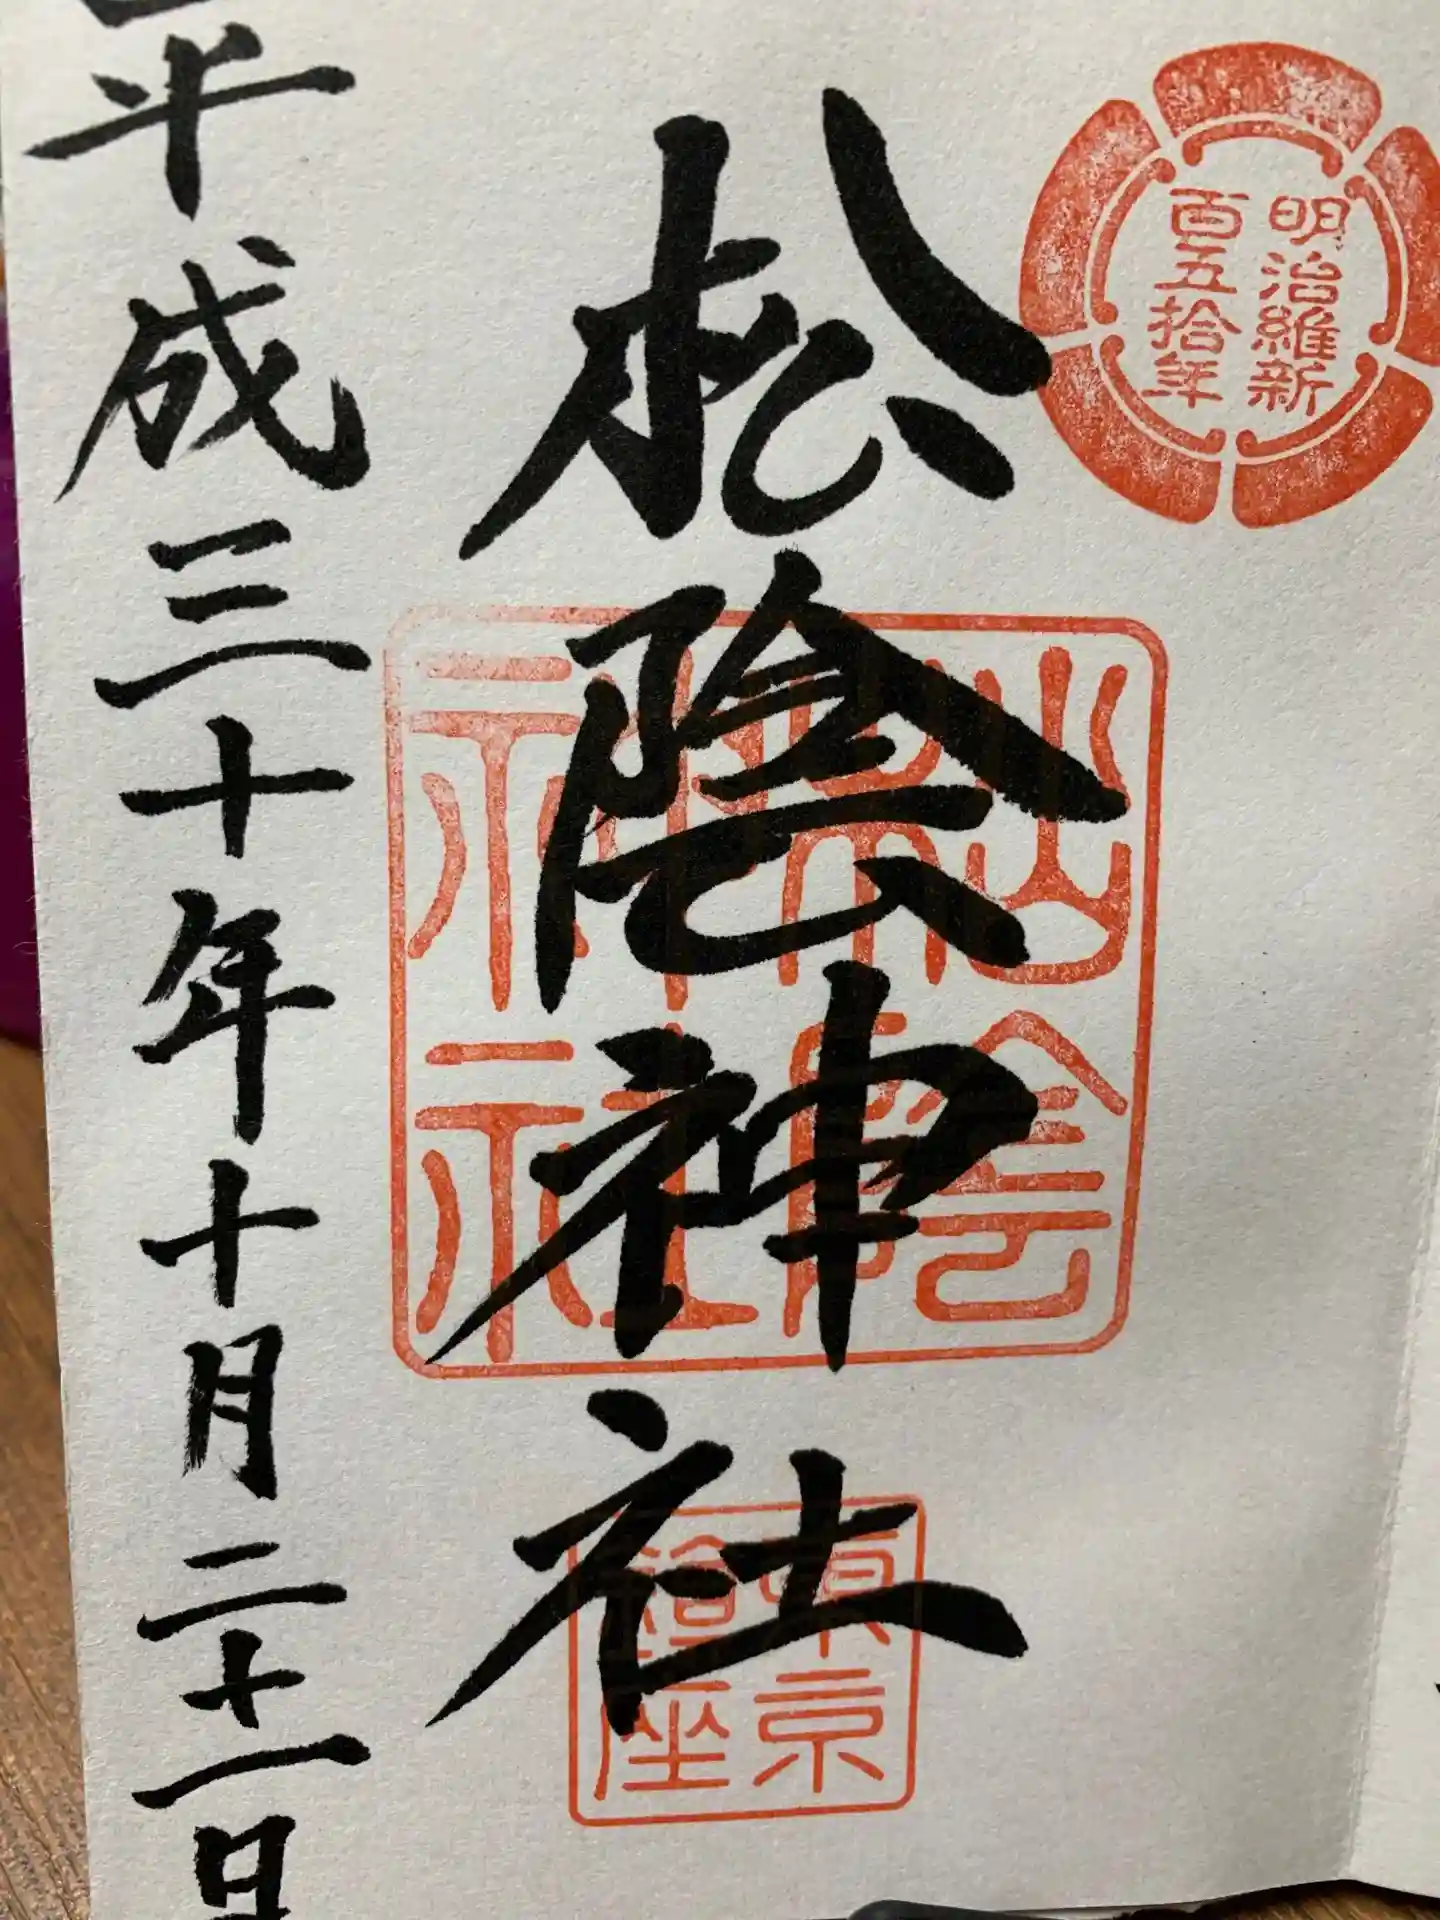 明治維新
百五拾年
松陰神社
松陰
神社
東京
鎮座
平成三十年十月二十一日